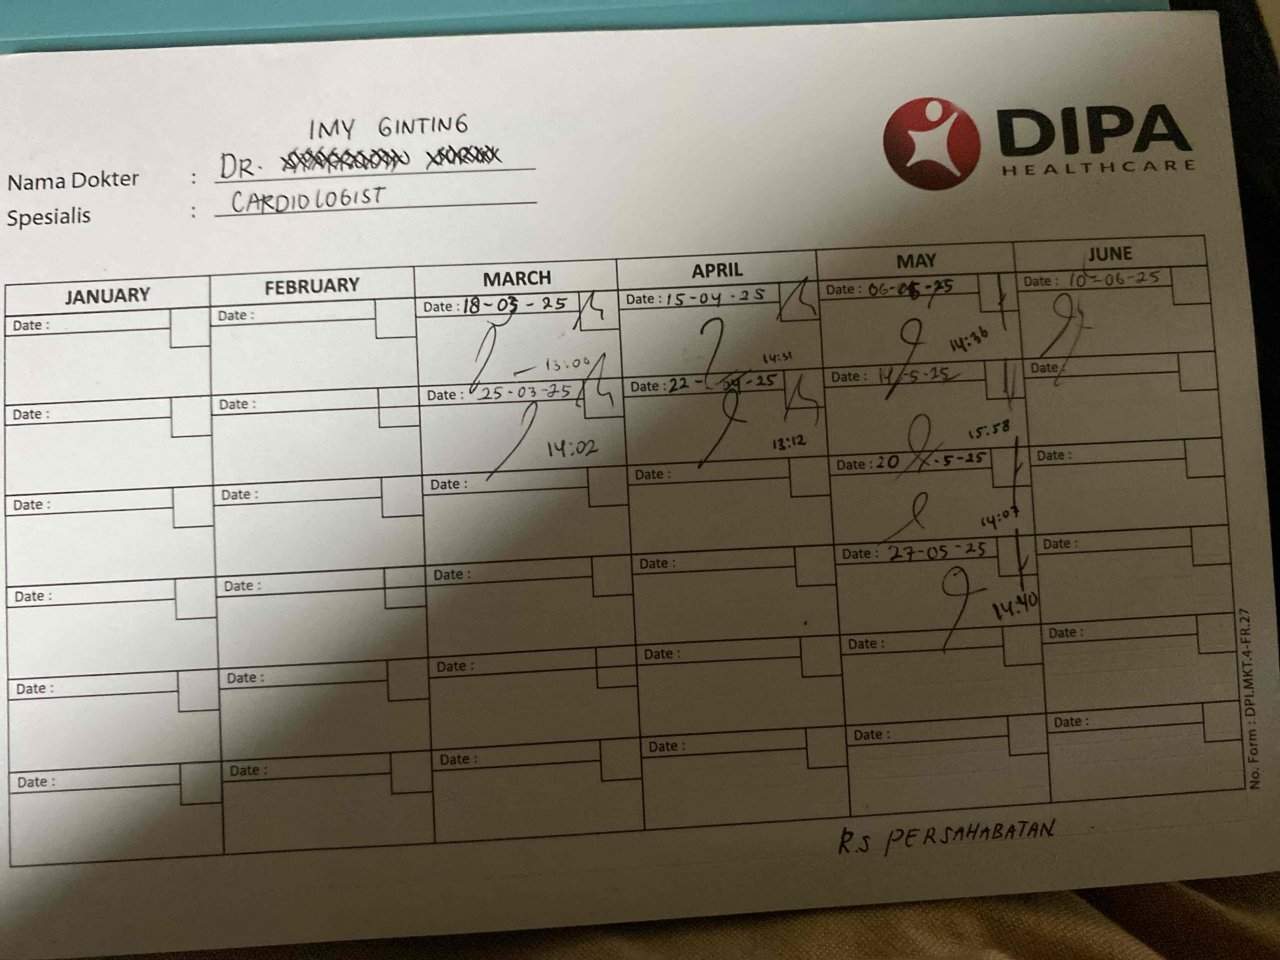 IMY GINTING
Nama Dokter : DR.
Spesialis : CARDIOLOGIST
DIPA
HEALTHCARE
JANUARY FEBRUARY MARCH APRIL MAY JUNE
Date : Date : Date : 18-03-25 Date : 15-04-25 Date : 06-05-25 Date : 10-06-25
13:00 14:31 14:36
Date : Date : Date : 25-03-25 Date : 22-04-25 Date : 14-5-25 Date :
14:02 13:12 15.58
Date : Date : Date : Date : Date : 20-5-25 Date :
14:07
Date : Date : Date : Date : Date : 27-05-25 Date :
14:40
Date : Date : Date : Date : Date : Date :
Date : Date : Date : Date : Date : Date :
R.S PERSAHABATAN
No. Form : DPI.MKT.4-FR.27